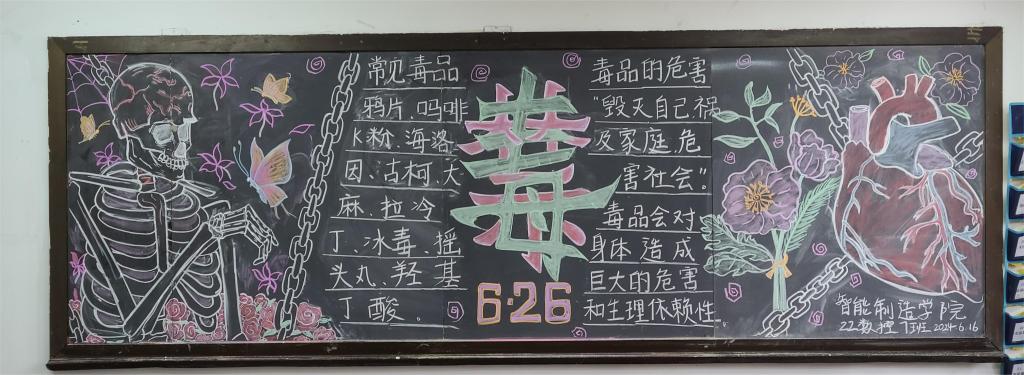 常见毒品
鸦片、吗啡
K粉、海洛
因、古柯、大
麻、拉冷
丁、冰毒、摇
头丸、羟基
丁酸。
毒
6·26
毒品的危害
“毁灭自己祸
及家庭危
害社会”。
毒品会对
身体造成
巨大的危害
和生理依赖性
智能制造学院
22数控1班 2024.6.16